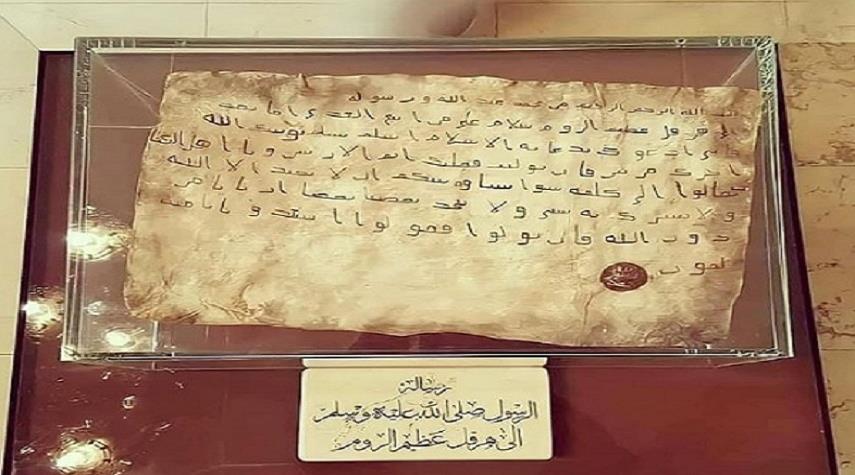 بسم الله الرحمن الرحيم من محمد عبد الله ورسوله
إلى هرقل عظيم الروم سلام على من اتبع الهدى اما بعد
فاني ادعوك بدعاية الاسلام اسلم تسلم يؤتك الله
اجرك مرتين فان توليت فعليك اثم الاريسين ويا اهل الكتا
ب تعالوا إلى كلمة سوا بيننا وبينكم ان لا نعبد الا الله
ولا نشرك به شي ولا يتخذ بعضنا بعضا اربابا من
دون الله فان تولوا فقولوا اشهدوا بانا مس
لمون
رسالة
الرسول صلى الله عليه وسلم
الى هرقل عظيم الروم